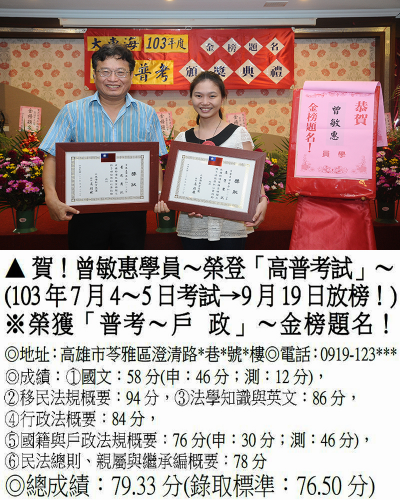 大東海 103年度 金榜題名
高普考 頒獎典禮
恭賀
曾敏惠
學員
金榜題名！
獎狀
獎狀
▲賀！曾敏惠學員～榮登「高普考試」～
(103年7月4～5日考試→9月19日放榜！)
※榮獲「普考～戶 政」～金榜題名！
◎地址：高雄市苓雅區澄清路*巷*號*樓◎電話：0919-123***
◎成績：①國文：58分(申：46分；測：12分)，
②移民法規概要：94分，③法學知識與英文：86分，
④行政法概要：84分，
⑤國籍與戶政法規概要：76分(申：30分；測：46分)，
⑥民法總則、親屬與繼承編概要：78分
◎總成績：79.33分(錄取標準：76.50分)